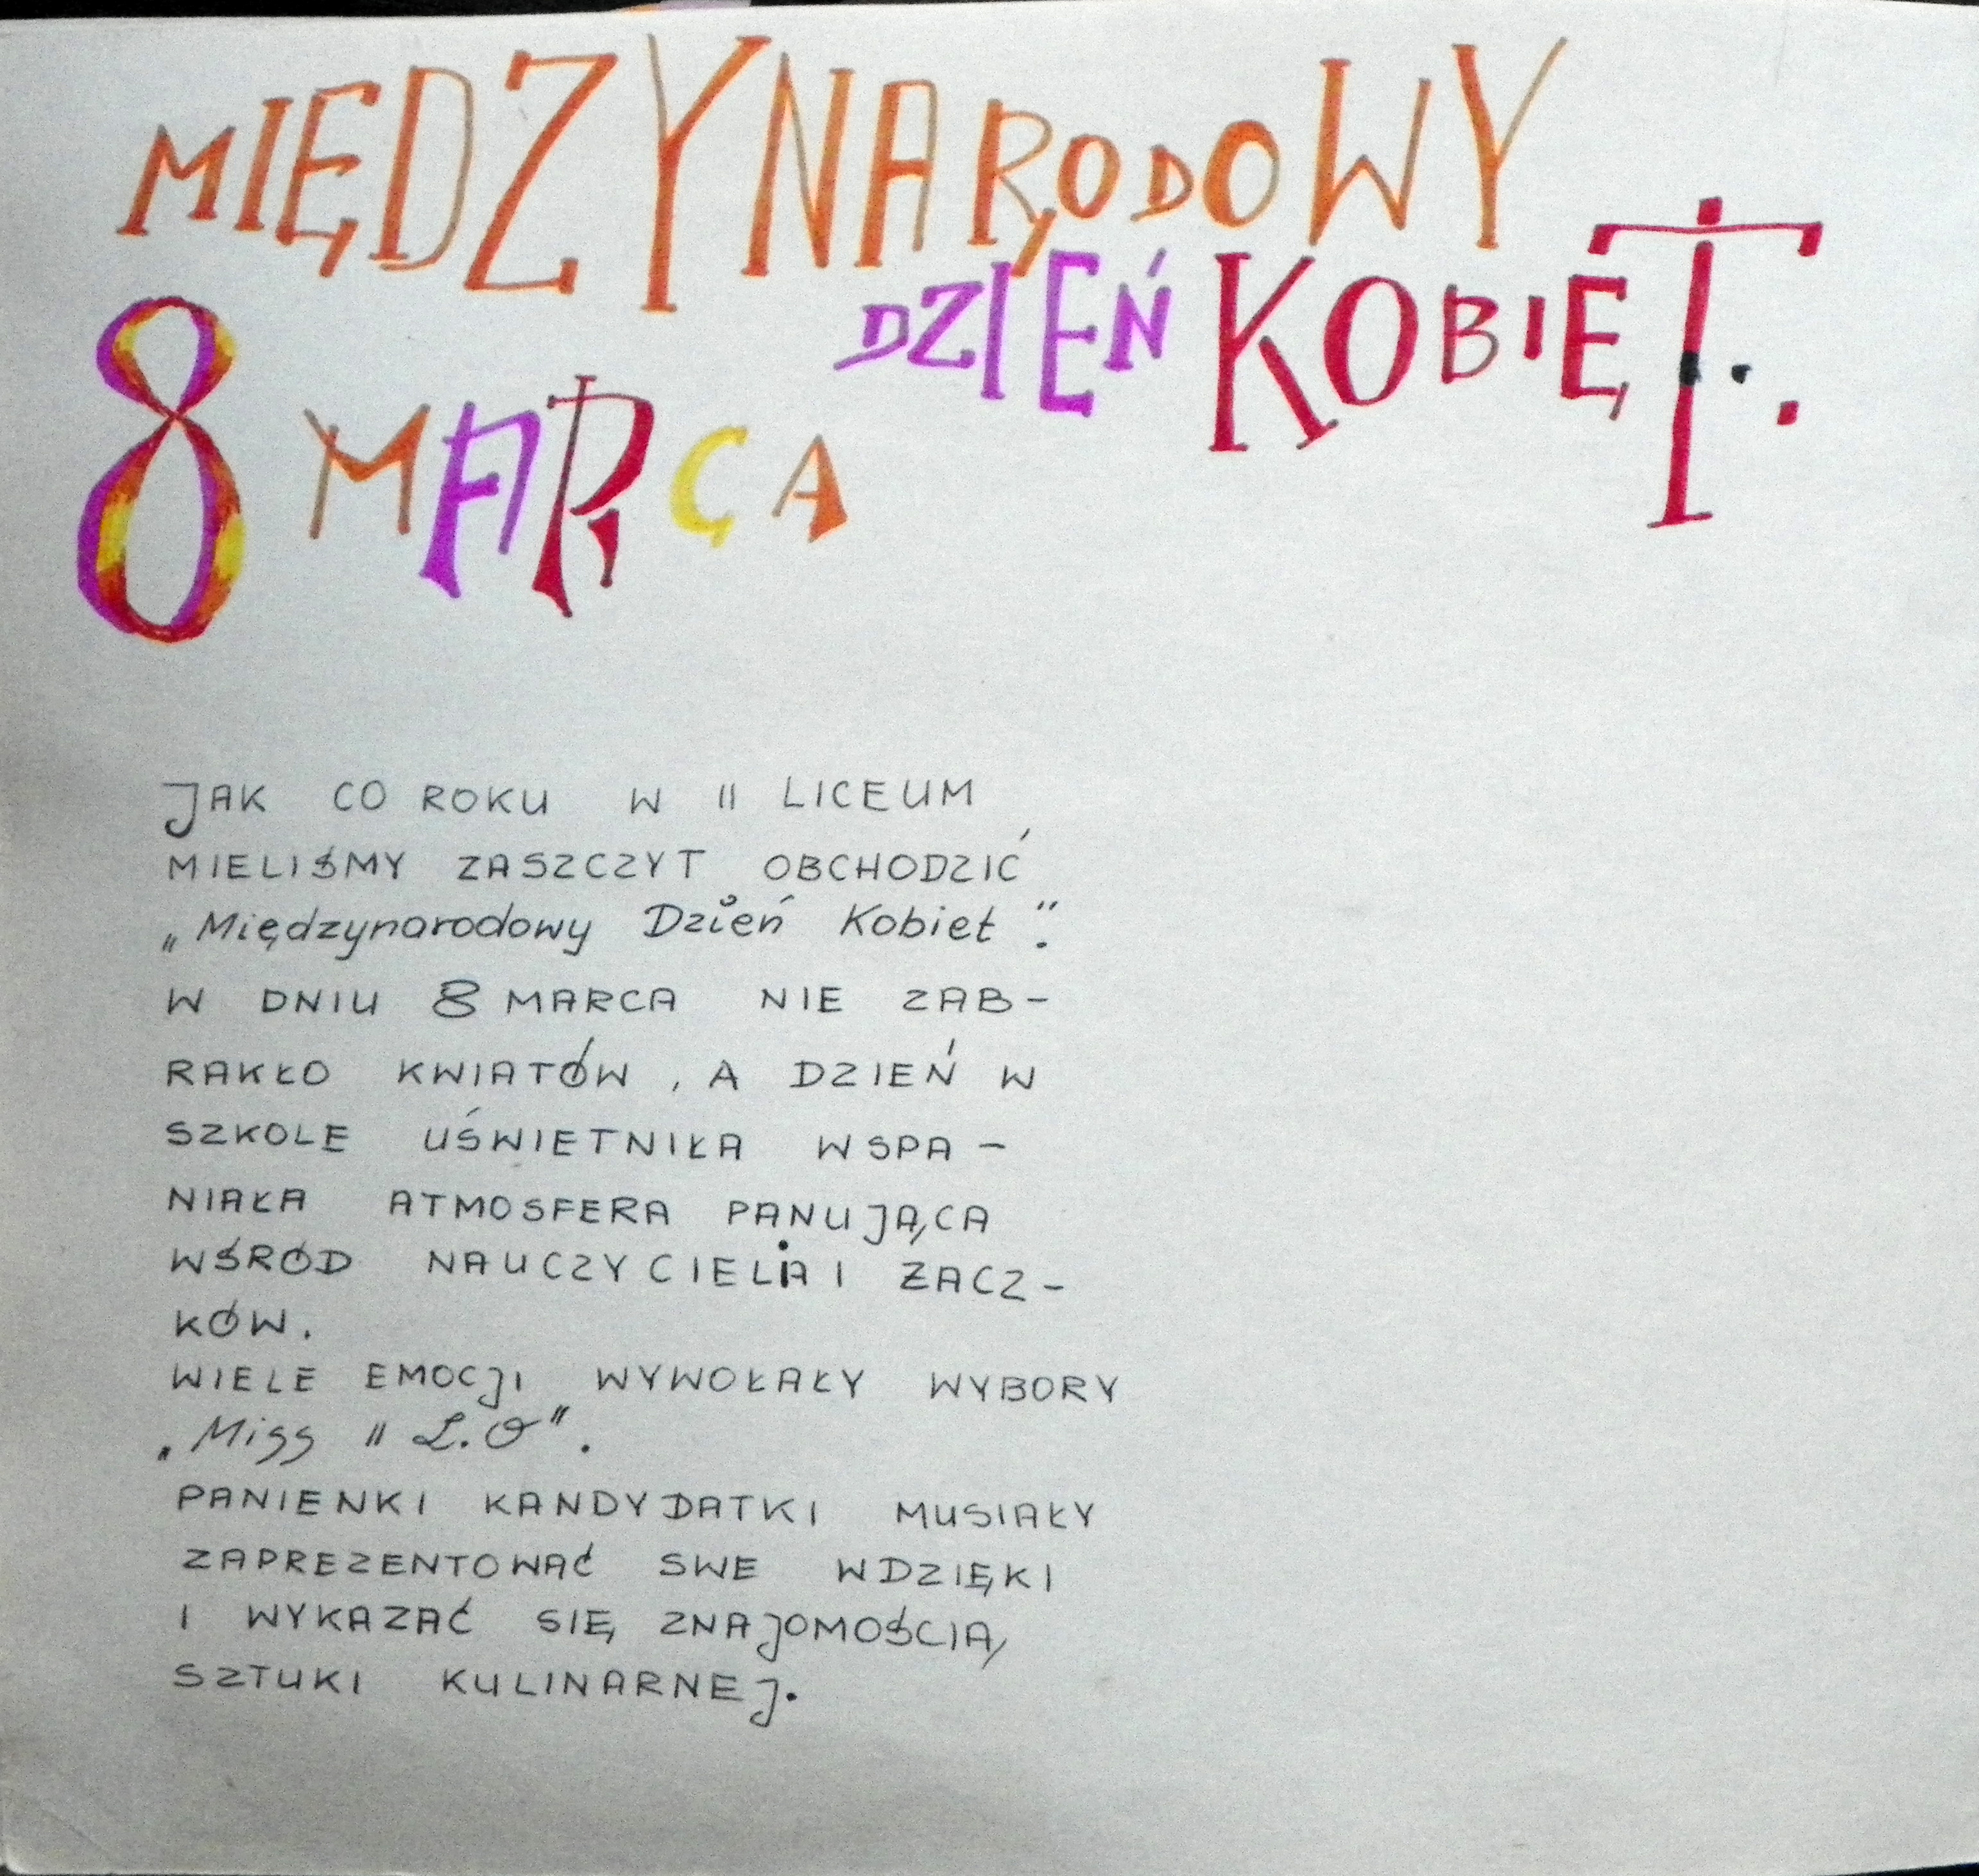 MIĘDZYNARODOWY
DZIEŃ KOBIET.
8 MARCA
JAK CO ROKU W II LICEUM
MIELIŚMY ZASZCZYT OBCHODZIĆ
„Międzynarodowy Dzień Kobiet".
W DNIU 8 MARCA NIE ZAB-
RAKŁO KWIATÓW, A DZIEŃ W
SZKOLE UŚWIETNIŁA WSPA-
NIAŁA ATMOSFERA PANUJĄCA
WŚRÓD NAUCZYCIELI I ŻACZ-
KÓW.
WIELE EMOCJI WYWOŁAŁY WYBORY
„Miss II L.O".
PANIENKI KANDYDATKI MUSIAŁY
ZAPREZENTOWAĆ SWE WDZIĘKI
I WYKAZAĆ SIĘ ZNAJOMOŚCIĄ
SZTUKI KULINARNEJ.